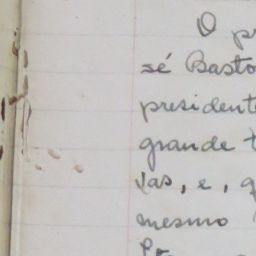 O pr
sé Basto
president
grande t
das, e, q
mesmo